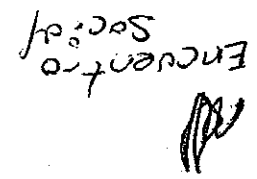 Encuentro
Social